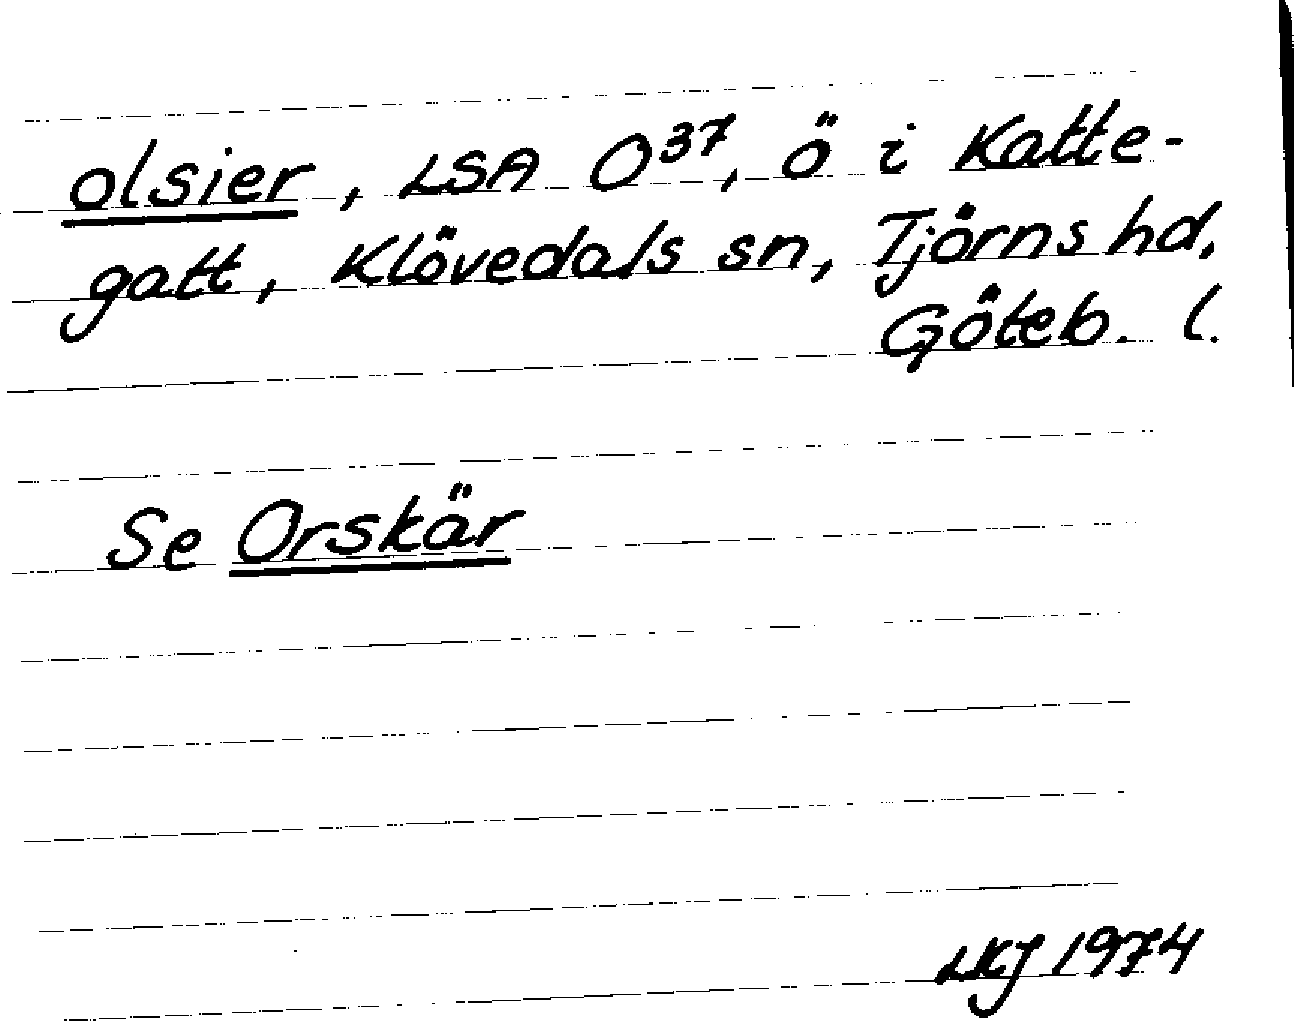 olsier, LSA O37, ö i Katte-
gatt, Klövedals sn, Tjörns hd,
Göteb. l.
Se Orskär
LKJ 1974